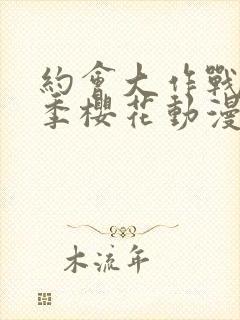 約會大作戰
季櫻花動漫
木流年